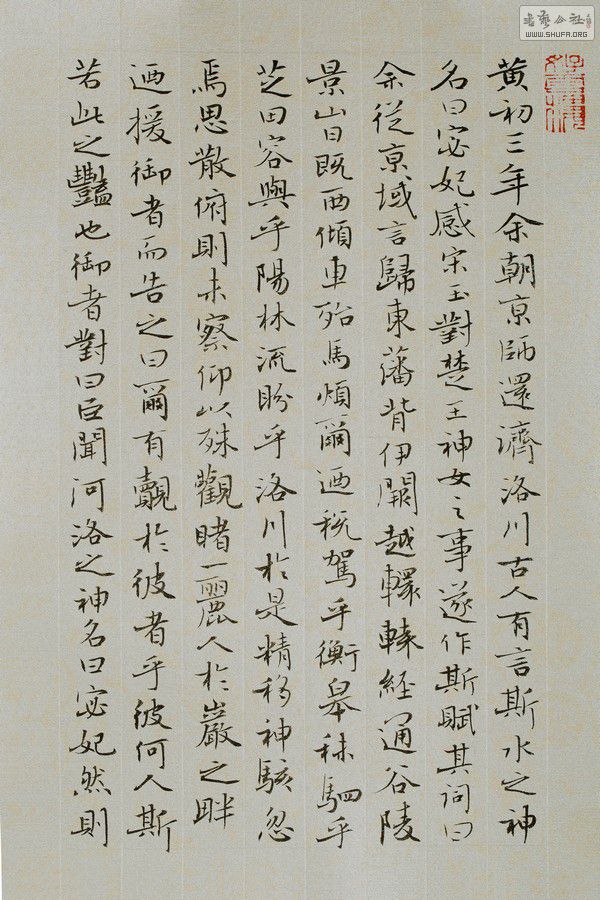 书艺公社
WWW.SHUFA.ORG
黄初三年余朝京師還濟洛川古人有言斯水之神
名曰宓妃感宋玉對楚王神女之事遂作斯賦其詞曰
余從京域言歸東藩背伊闕越轘轅經通谷陵
景山日既西傾車殆馬煩爾迺税駕乎衡皋秣駟乎
芝田容與乎陽林流盼乎洛川於是精移神駭忽
焉思散俯則未察仰以殊觀睹一麗人於巖之畔
迺援御者而告之曰爾有覿於彼者乎彼何人斯
若此之豔也御者對曰臣聞河洛之神名曰宓妃然則